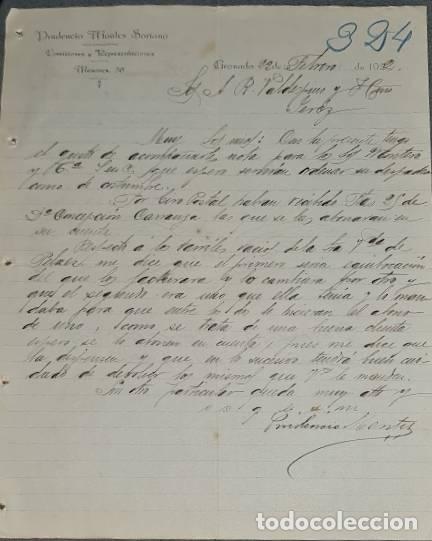 Prudencio Montes Soriano
Comisiones y Representaciones
Mesones, 38
324
Granada 22 de Febrero de 1932
A. R. Valdespino y Hno
Jerez
Muy Sres mios: Con la presente tengo
el gusto de acompañarles nota para los Sres
y Cª que espero servirán ordenar su despacho
como de costumbre.
Por Giro Postal habrán recibido Ptas 25 de
Dª Concepción Carranza las que se les abonarán en
su cuenta
Respecto a los barriles vacios de la Sra Vda de
me dice que el primero seria equivocación
del que los facturara y lo cambiara por otro y
que el segundo era uno que ella tenia y lo man
daba para que entre los dos le hicieran el abono
de uno, como se trata de una buena clienta
espero se lo abonen en cuenta, pues me dice que
la dispensen y que en lo sucesivo tendrá buen cui
dado de devolver los mismos que Vds le mandan.
Sin otro particular queda muy atto y
s s q e s m
Prudencio Montes